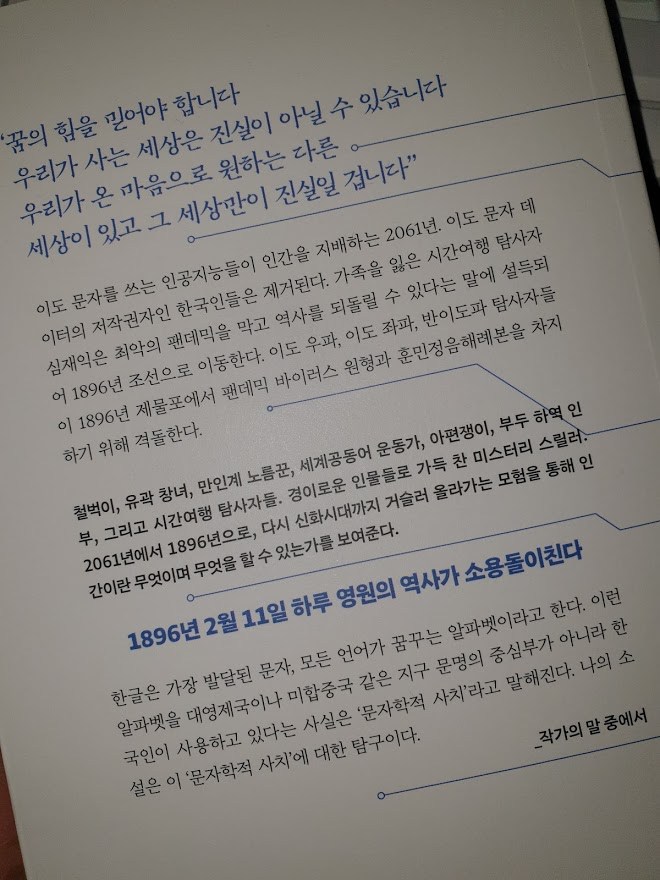 “꿈의 힘을 믿어야 합니다
우리가 사는 세상은 진실이 아닐 수 있습니다
우리가 온 마음으로 원하는 다른
세상이 있고 그 세상만이 진실일 겁니다”
이도 문자를 쓰는 인공지능들이 인간을 지배하는 2061년. 이도 문자 데
이터의 저작권자인 한국인들은 제거된다. 가족을 잃은 시간여행 탐사자
심재익은 최악의 팬데믹을 막고 역사를 되돌릴 수 있다는 말에 설득되
어 1896년 조선으로 이동한다. 이도 우파, 이도 좌파, 반이도파 탐사자들
이 1896년 제물포에서 팬데믹 바이러스 원형과 훈민정음해례본을 차지
하기 위해 격돌한다.
철벅이, 유곽 창녀, 만인계 노름꾼, 세계공동어 운동가, 아편쟁이, 부두 하역 인
부, 그리고 시간여행 탐사자들. 경이로운 인물들로 가득 찬 미스터리 스릴러.
2061년에서 1896년으로, 다시 신화시대까지 거슬러 올라가는 모험을 통해 인
간이란 무엇이며 무엇을 할 수 있는가를 보여준다.
1896년 2월 11일 하루 영원의 역사가 소용돌이친다
한글은 가장 발달된 문자, 모든 언어가 꿈꾸는 알파벳이라고 한다. 이런
알파벳을 대영제국이나 미합중국 같은 지구 문명의 중심부가 아니라 한
국인이 사용하고 있다는 사실은 ‘문자학적 사치’라고 말해진다. 나의 소
설은 이 ‘문자학적 사치’에 대한 탐구이다.
_작가의 말 중에서